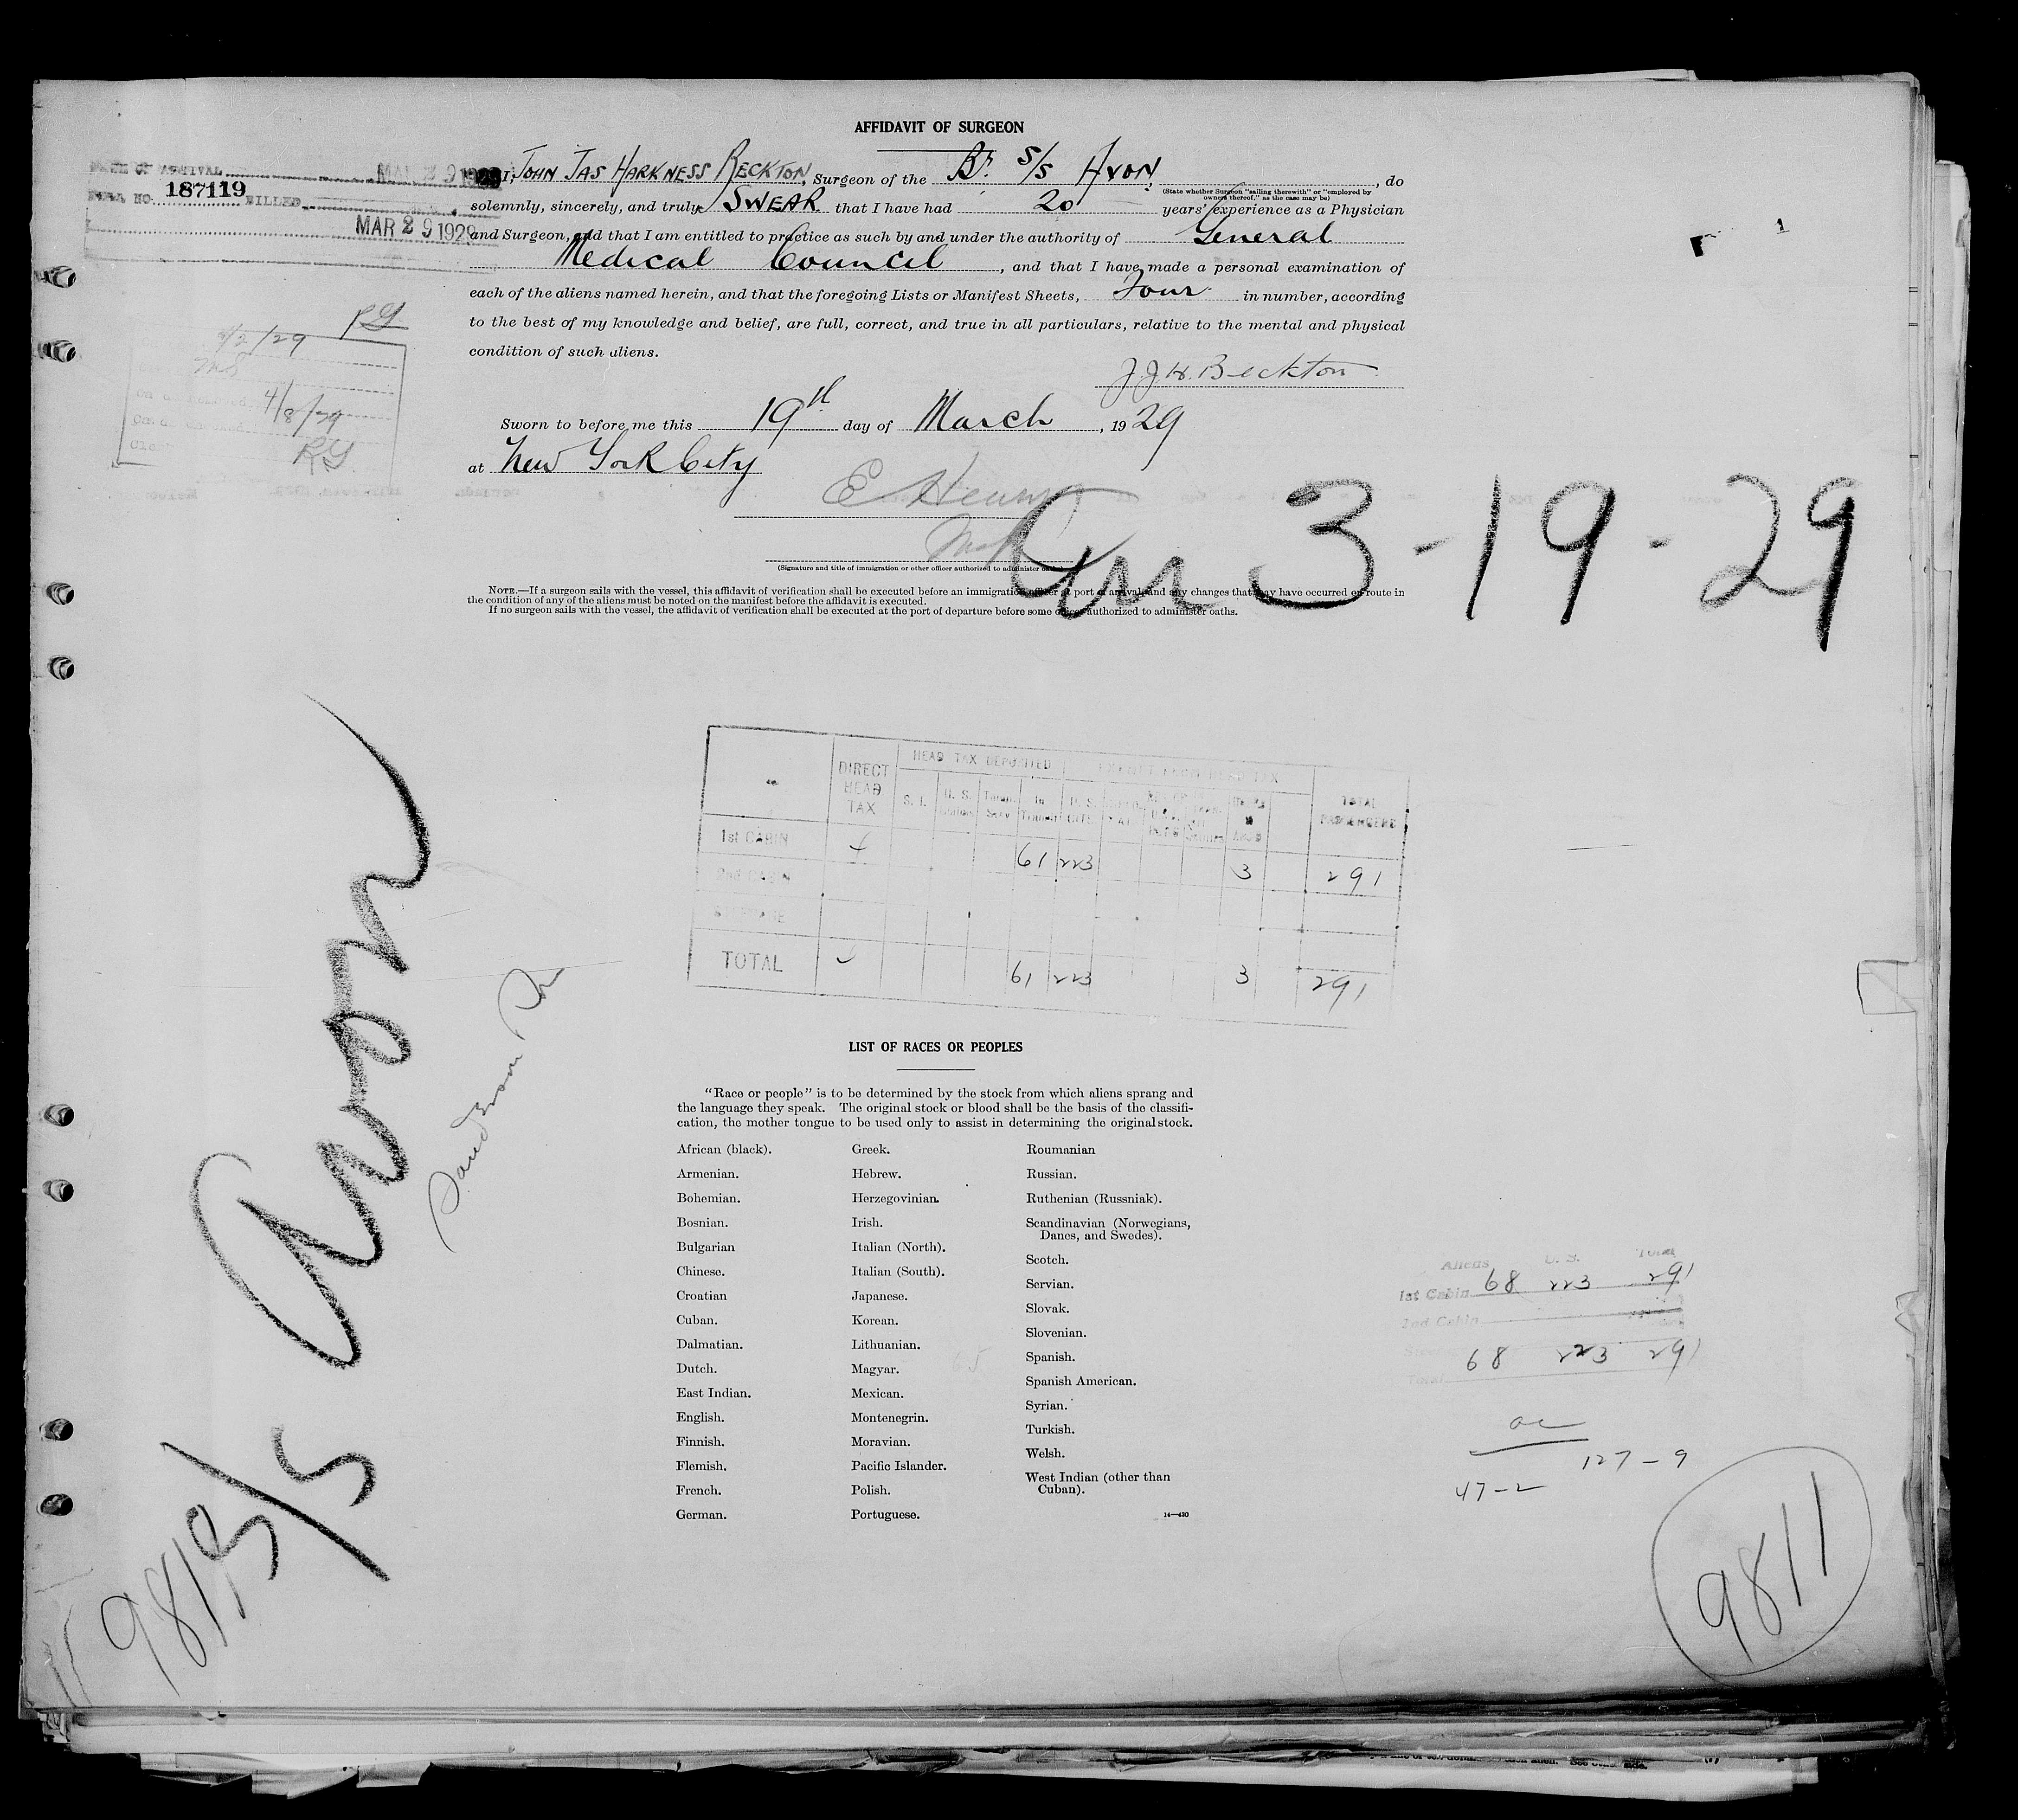 AFFIDAVIT OF SURGEON
DATE OF ARRIVAL MAR 29 1929
BILL NO. 187119 BILLED
MAR 29 1929
I, JOHN JAS HARKNESS BECKTON, Surgeon of the Br. S/S AVON, do
(State whether Surgeon "sailing therewith" or "employed by
owners thereof," as the case may be)
solemnly, sincerely, and truly SWEAR that I have had 20 years' experience as a Physician
and Surgeon, and that I am entitled to practice as such by and under the authority of General
Medical Council, and that I have made a personal examination of
each of the aliens named herein, and that the foregoing Lists or Manifest Sheets, Four in number, according
to the best of my knowledge and belief, are full, correct, and true in all particulars, relative to the mental and physical
condition of such aliens.
J.J.H. Beckton
RG
4/2/29
4/8/29
RG
Sworn to before me this 19th day of March, 1929
at New York City
(Signature and title of immigration or other officer authorized to administer oaths)
3-19-29
NOTE.—If a surgeon sails with the vessel, this affidavit of verification shall be executed before an immigration officer at port of arrival and any changes that may have occurred en route in
the condition of any of the aliens must be noted on the manifest before the affidavit is executed.
If no surgeon sails with the vessel, the affidavit of verification shall be executed at the port of departure before some officer authorized to administer oaths.
DIRECT HEAD TAX HEAD TAX DEPOSITED EXEMPT FROM HEAD TAX TOTAL PASSENGERS
S. I. U. S. In Transit U. S.
1st CABIN 4 61 223 3 291
2nd CABIN
STEERAGE
TOTAL 61 223 3 291
S/S Avon
9811
LIST OF RACES OR PEOPLES
"Race or people" is to be determined by the stock from which aliens sprang and
the language they speak. The original stock or blood shall be the basis of the classifi-
cation, the mother tongue to be used only to assist in determining the original stock.
African (black).
Armenian.
Bohemian.
Bosnian.
Bulgarian
Chinese.
Croatian
Cuban.
Dalmatian.
Dutch.
East Indian.
English.
Finnish.
Flemish.
French.
German.
Greek.
Hebrew.
Herzegovinian.
Irish.
Italian (North).
Italian (South).
Japanese.
Korean.
Lithuanian.
Magyar.
Mexican.
Montenegrin.
Moravian.
Pacific Islander.
Polish.
Portuguese.
Roumanian
Russian.
Ruthenian (Russniak).
Scandinavian (Norwegians,
Danes, and Swedes).
Scotch.
Servian.
Slovak.
Slovenian.
Spanish.
Spanish American.
Syrian.
Turkish.
Welsh.
West Indian (other than
Cuban).
14—430
Aliens U. S. Total
1st Cabin 68 223 291
2nd Cabin
Total 68 223 291
127-9
47-2
9811